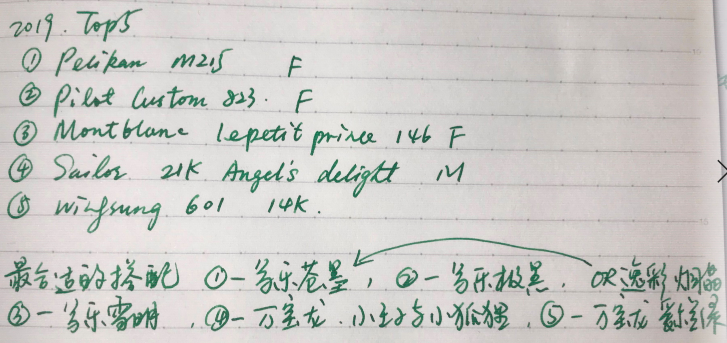 2019. Top5
① Pelikan M215 F
② Pilot Custom 823. F
③ Montblanc lepetit prince 146 F
④ Sailor 21K Angel's delight M
⑤ wingsung 601 14K.
最合适的搭配 ①一写乐苍墨, ②一写乐极黑. OR 逸彩
③一写乐雪明, ④一万宝龙. 小王子与小狐狸, ⑤一万宝龙